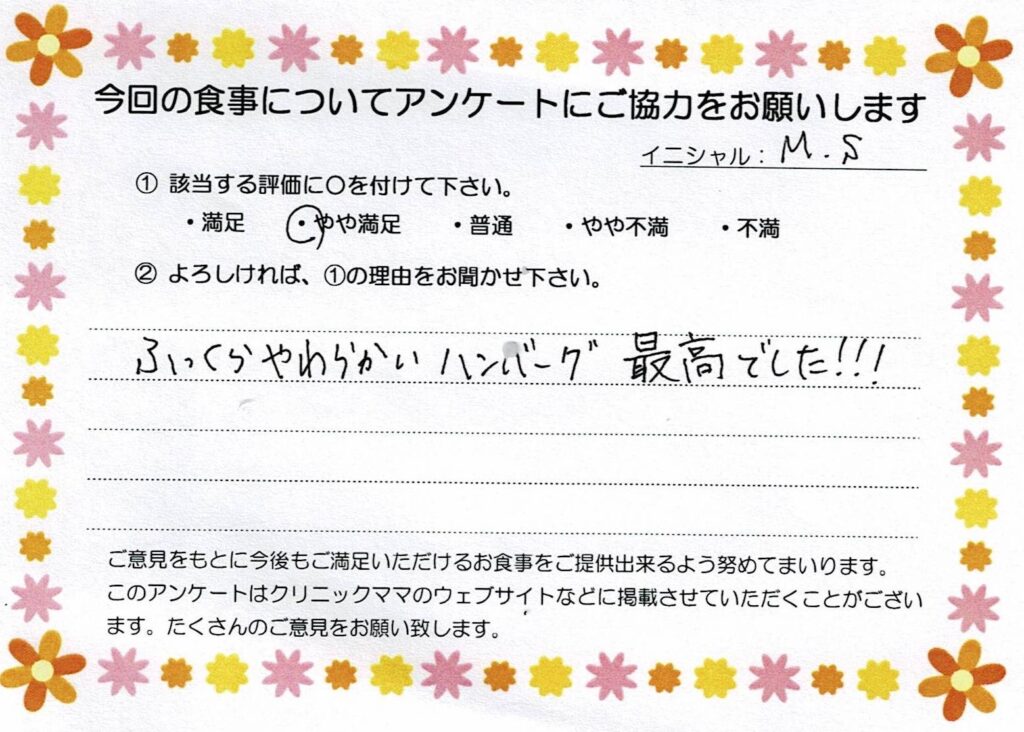 今回の食事についてアンケートにご協力をお願いします
イニシャル：M.S
① 該当する評価に〇を付けて下さい。
・満足 ・やや満足 ・普通 ・やや不満 ・不満
② よろしければ、①の理由をお聞かせ下さい。
ふっくらやわらかいハンバーグ 最高でした!!!
ご意見をもとに今後もご満足いただけるお食事をご提供出来るよう努めてまいります。
このアンケートはクリニックママのウェブサイトなどに掲載させていただくことがござい
ます。たくさんのご意見をお願い致します。